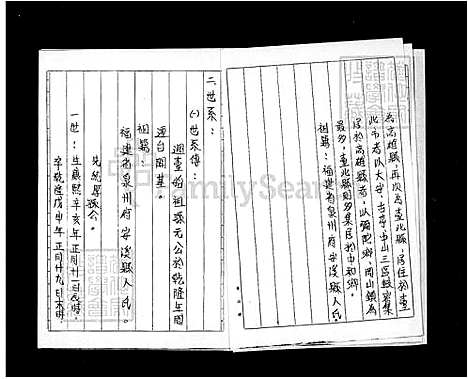 為高雄縣，再次為臺北縣，居住於臺
北市者以大安、古亭、中山三區較密集
居於高雄縣者，以彌陀鄉、岡山鎮為
最多，臺北縣則多集居於中和鄉。
祖籍：福建省泉州府安溪縣人氏。
二、世系：
(一)世系傳：
迴臺始祖 元公於乾隆年間
運台開基。
祖籍：
福建省泉州府安溪縣人氏。
先統 公。
一世：生康熙辛亥年正月廿一日 時，
卒乾隆戊申年正月廿九日未時，
FamilySearch